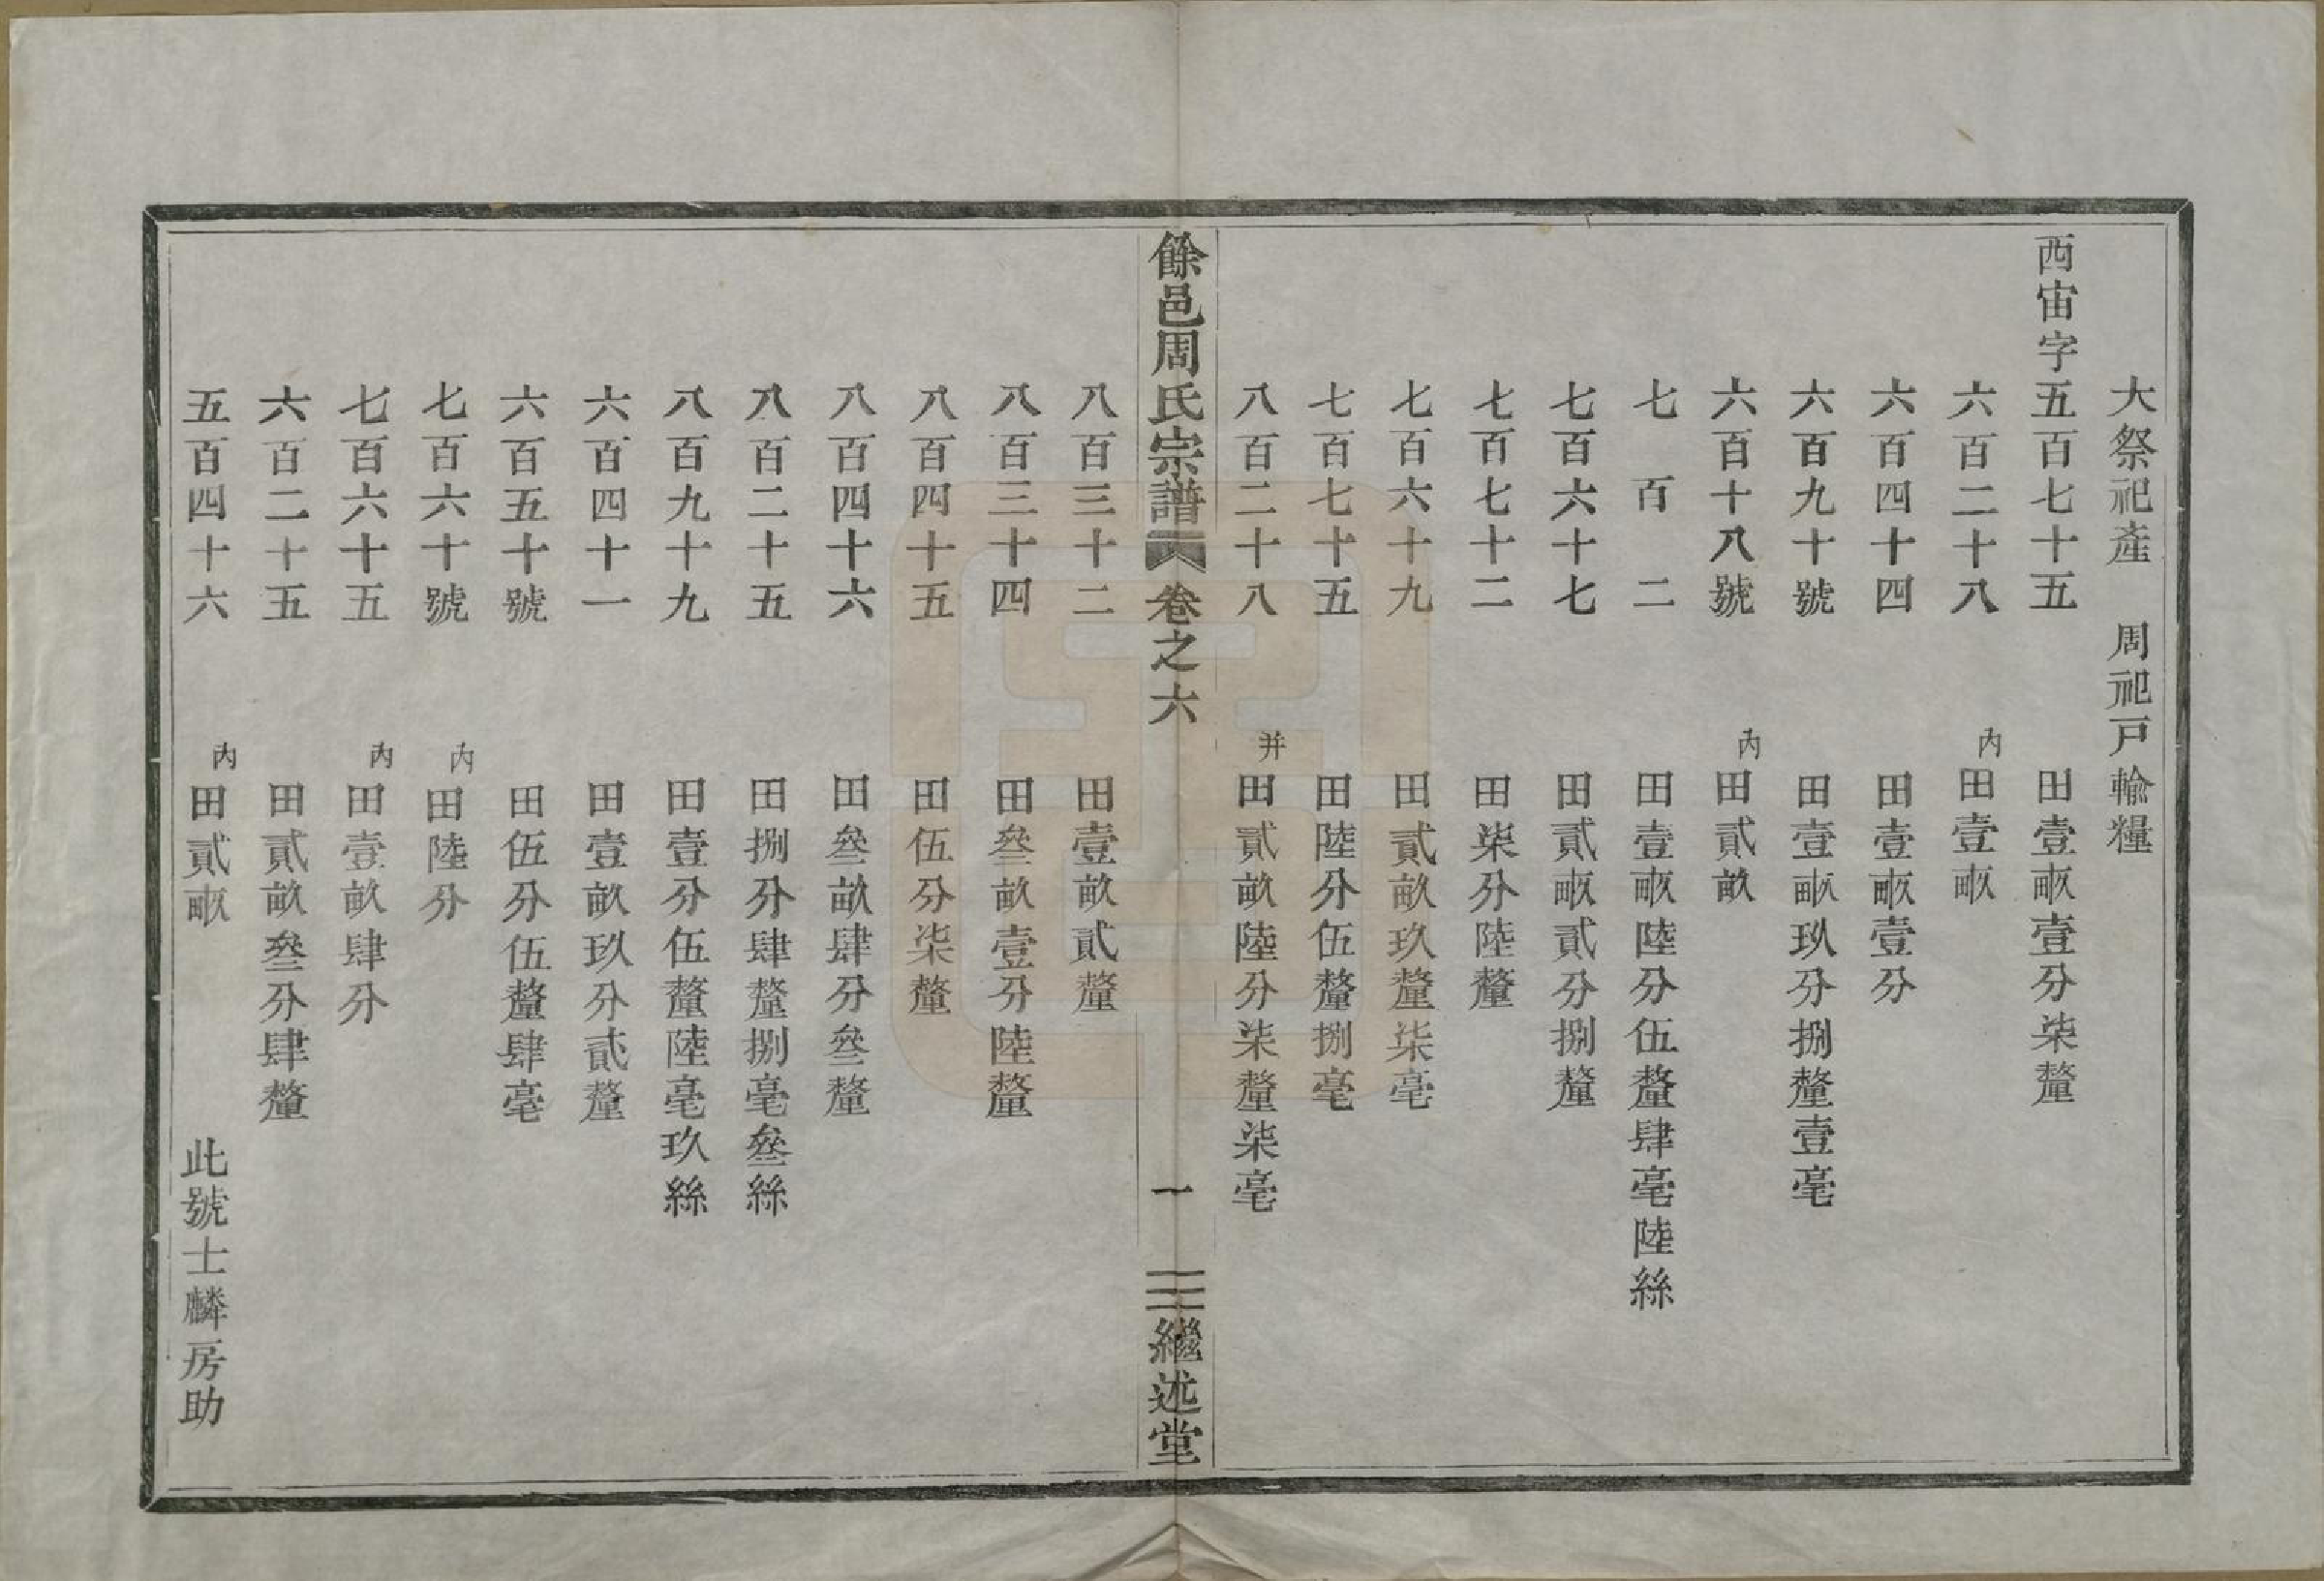 大祭祀產　周祀戸輸糧
西宙字五百七十五　田壹畞壹分柒釐
六百二十八　内田壹畞
六百四十四　田壹畞壹分
六百九十號　田壹畞玖分捌釐壹毫
六百十八號　内田貳畝
七百二　田壹畞陸分伍釐肆毫陸絲
七百六十七　田貳畞貳分捌釐
七百七十二　田柒分陸釐
七百六十九　田貳畝玖釐柒毫
七百七十五　田陸分伍釐捌毫
八百二十八　并田貳畝陸分柒釐柒毫
餘邑周氏宗譜　卷之六　一　繼述堂
八百三十二　田壹畝貳釐
八百三十四　田叄畝壹分陸釐
八百四十五　田伍分柒釐
八百四十六　田叄畝肆分叄釐
八百二十五　田捌分肆釐捌毫叄絲
八百九十九　田壹分伍釐陸毫玖絲
六百四十一　田壹畝玖分貳釐
六百五十號　田伍分伍釐肆毫
七百六十號　内田陸分
七百六十五　内田壹畝肆分
六百二十五　田貳畝叄分肆釐
五百四十六　内田貳畞　此號士麟房助